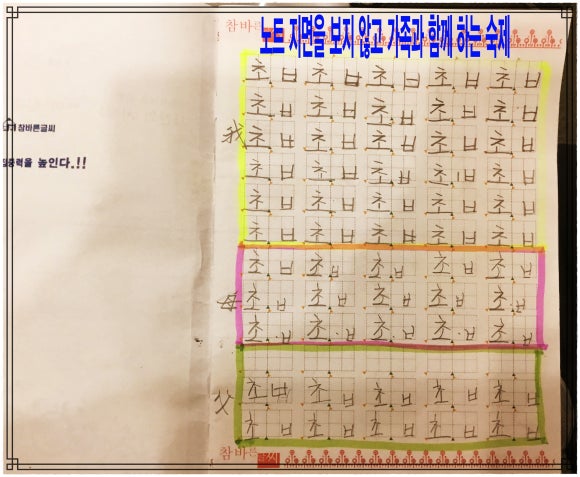 참바
노트 지면을 보지 않고 가족과 함께 하는 숙제
참바른글씨
집중력을 높인다.!!
초 ㅂ 초 ㅂ 초 ㅂ 초 ㅂ 초 ㅂ
초 ㅂ 초 ㅂ 초 ㅂ 초 ㅂ 초 ㅂ
我 초 ㅂ 초 ㅂ 초 ㅂ 초 ㅂ 초 ㅂ
초 ㅂ 초 ㅂ 초 ㅂ 초 ㅂ 초 ㅂ
초 ㅂ 초 ㅂ 초 ㅂ 초 ㅂ 초 ㅂ
초 ㅂ 초 ㅂ 초 ㅂ 초 ㅂ 초 ㅂ
초 ㅂ 초 ㅂ 초 ㅂ 초 ㅂ 초 ㅂ
母 초 ㅂ 초 ㅂ 초 ㅂ 초 ㅂ 초 ㅂ
초 ㅂ 초 ㅂ 초 ㅂ 초 ㅂ 초 ㅂ
父 초 ㅂ 초 ㅂ 초 ㅂ 초 ㅂ 초 ㅂ
초 ㅂ 초 ㅂ 초 ㅂ 초 ㅂ 초 ㅂ
참바른글씨